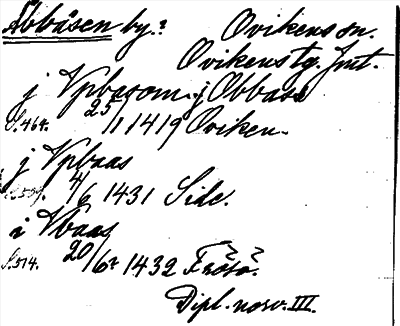 Åbbåsen by.: Ovikens sn.
Ovikens tg. Jmt.
j Vpbasom. j Obbase
S. 464. 25/1 1419 Oviken.
j Vpbaas
S. 509. 4/6 1431 Side.
i Vbaas
S. 514. 20/6? 1432 Frösö.
Dipl. norv. III.